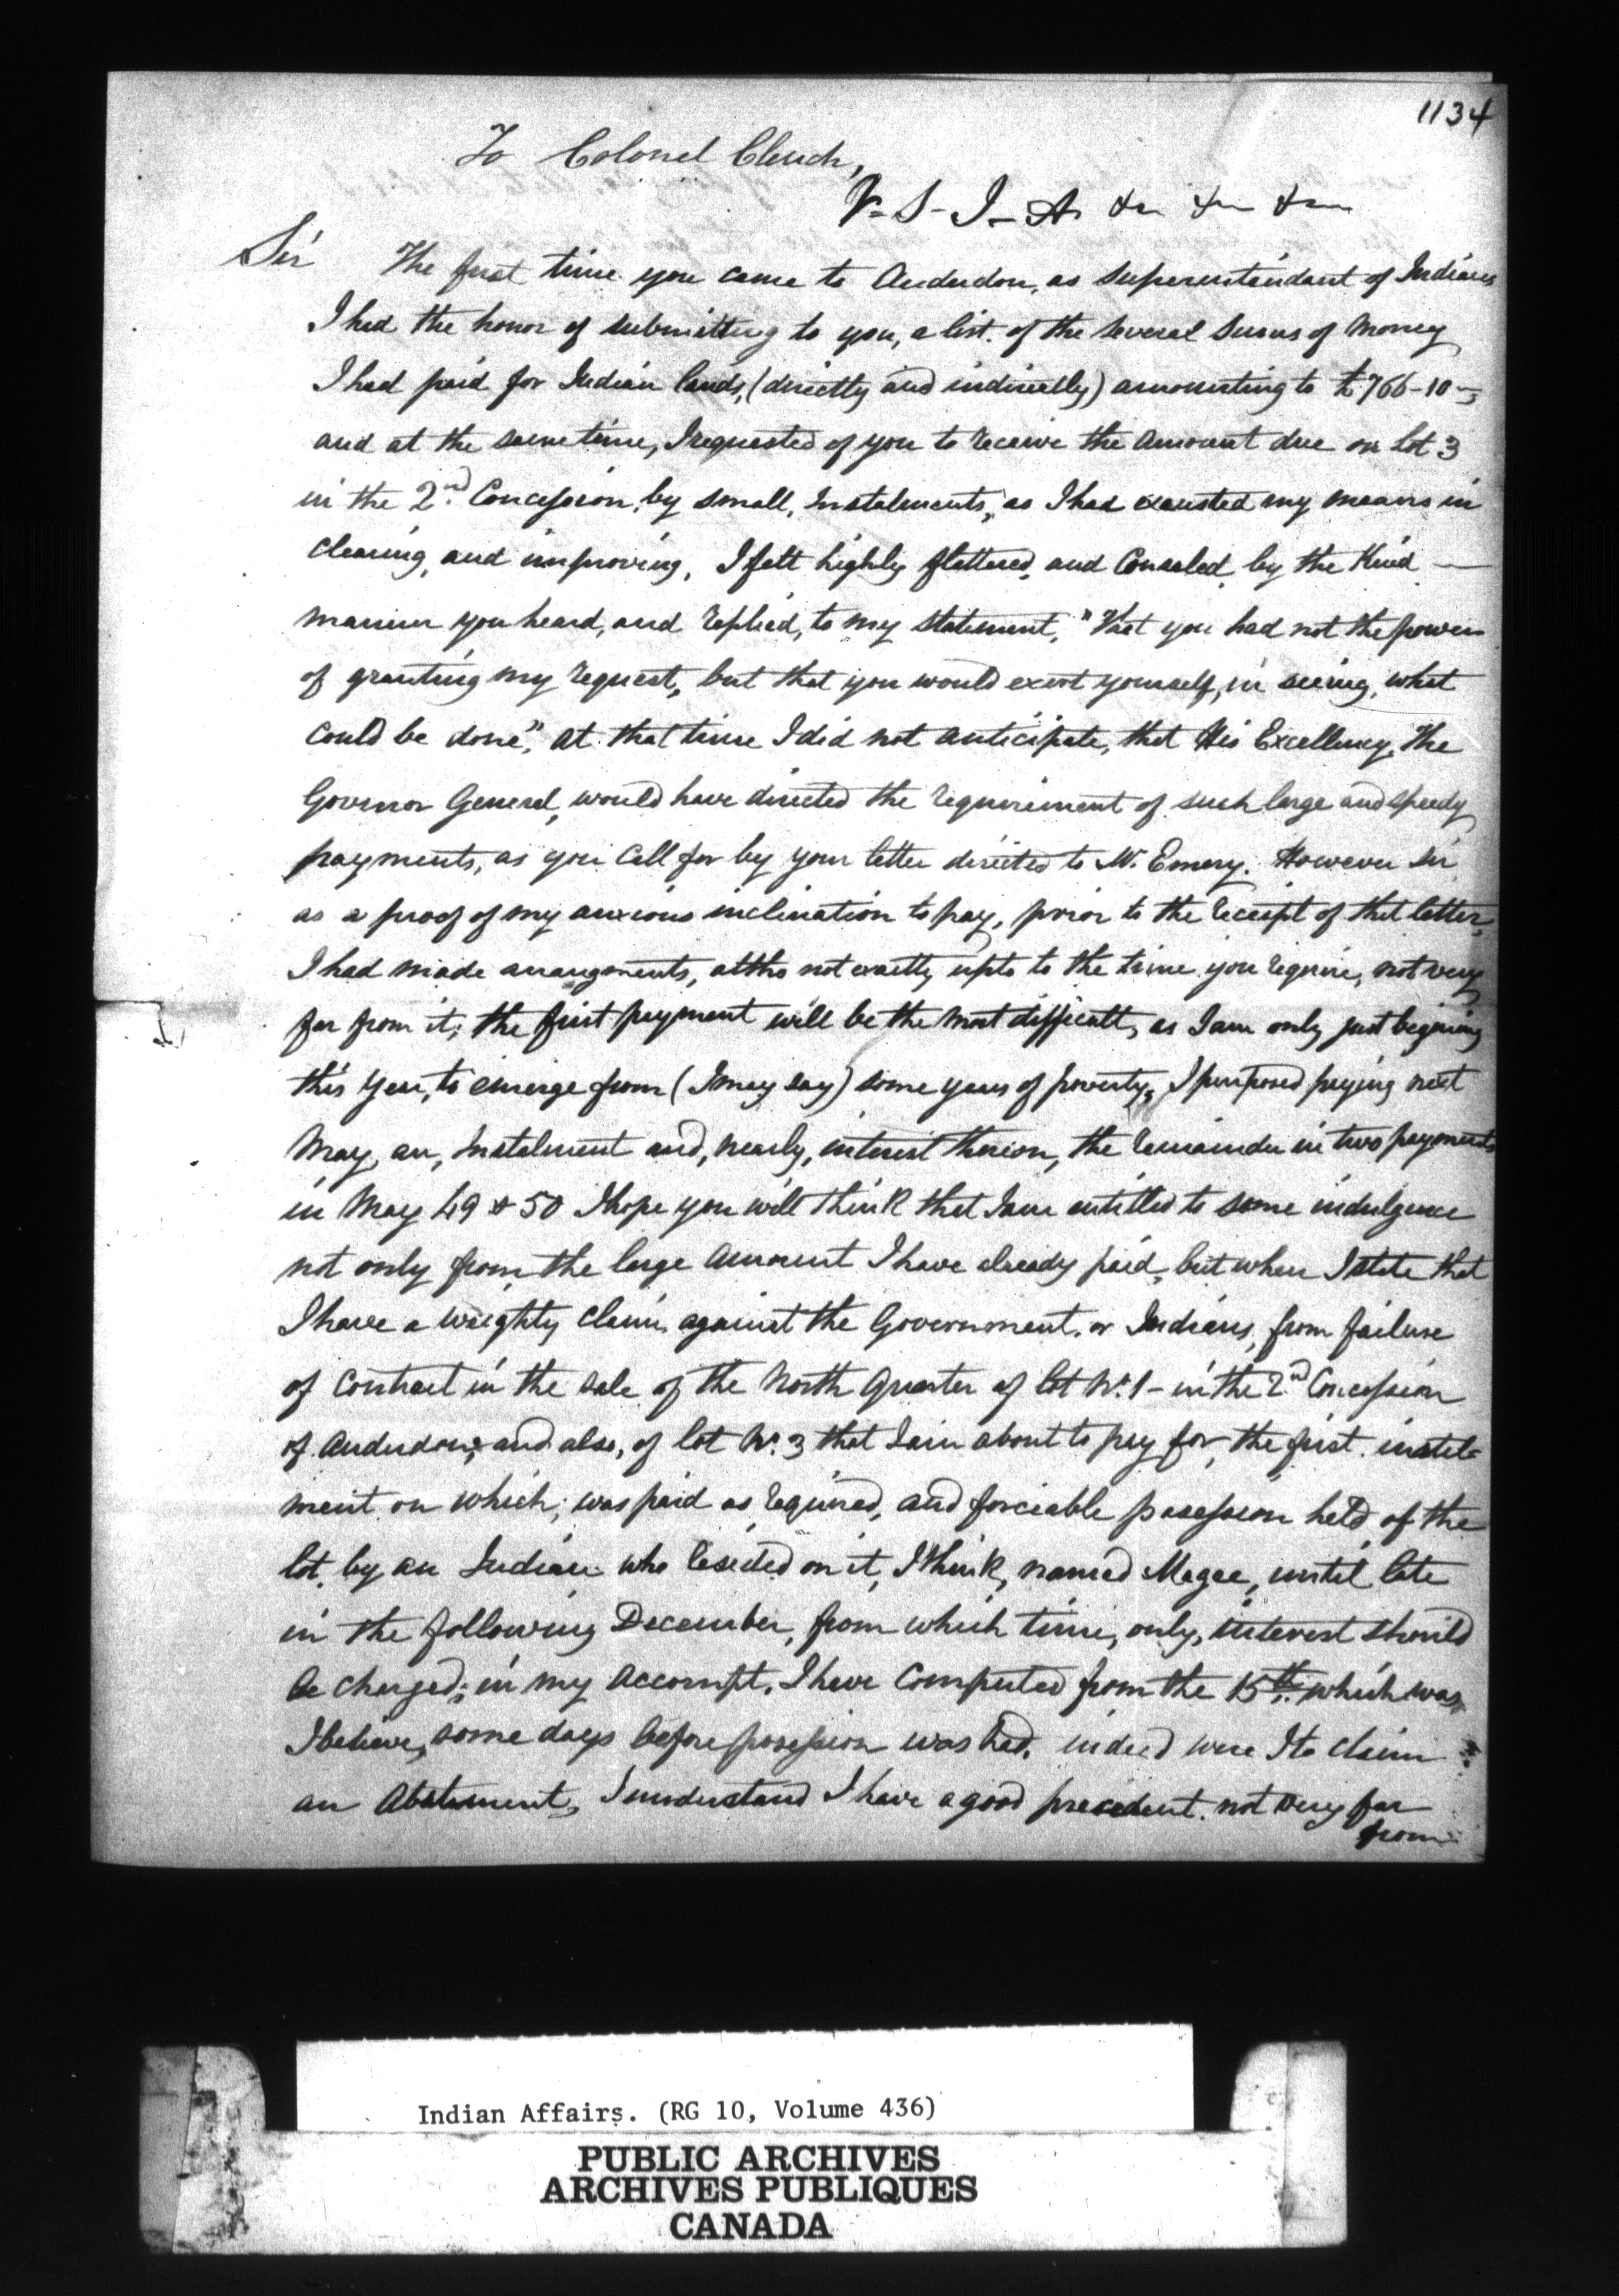 1134
To Colonel Clench,
V- S- I- A. &c &c &c
Sir The first time you came to Anderdon, as Superintendant of Indians
I had the honor of submitting to you, a list. of the several Sums of Money
I had paid for Indian lands, (directly and indirectly) amounting to £766-10-,
and at the same time, I requested of you to receive the Amount due on Lot 3
in the 2nd. Concession, by small, Instalments, as I had exausted my means in
clearing, and improving, I felt highly flattered, and Consoled, by the Kind —
manner you heard, and replied, to my statement, "that you had not the power
of granting my request, but that you would exert yourself, in seeing, what
could be done", at that time I did not anticipate, that His Excellency, the
Governor General, would have directed the requirement of such large and speedy
payments, as you Call for by your letter directed to Mr. Emery. However Sir
as a proof of my anxious inclination to pay, prior to the receipt of that letter,
I had made arrangements, altho not exactly upto to the time you require, not very
far from it; the first payment will be the most difficult, as I am only just begining
this Year, to emerge from (I may say) some years of poverty, I purposed paying next
May, an, Instalment and, nearly, interest thereon, the remainder in two payments
in May 49 & 50 I hope you will think that I am entitled to some indulgence
not only from the large Amount I have already paid, but when I state that
I have a weighty Claim against the Government. or Indians, from failure
of Contract in the sale of the North Quarter of lot No. 1 - in the 2nd Concession
of Anderdon, and also, of lot No. 3 that I am about to pay for, the first. instal=
ment on which; was paid as required, and forciable posession held of the
lot, by an Indian who resided on it, I think, named Magee, until late
in the following December, from which time, only, interest should
be charged; in my accompt, I have Computed from the 15th. which was,
I believe, some days before posession was had. indeed were I to claim
an Abatement, I understand I have a good precedent. not very far
from
Indian Affairs. (RG 10, Volume 436)
PUBLIC ARCHIVES
ARCHIVES PUBLIQUES
CANADA